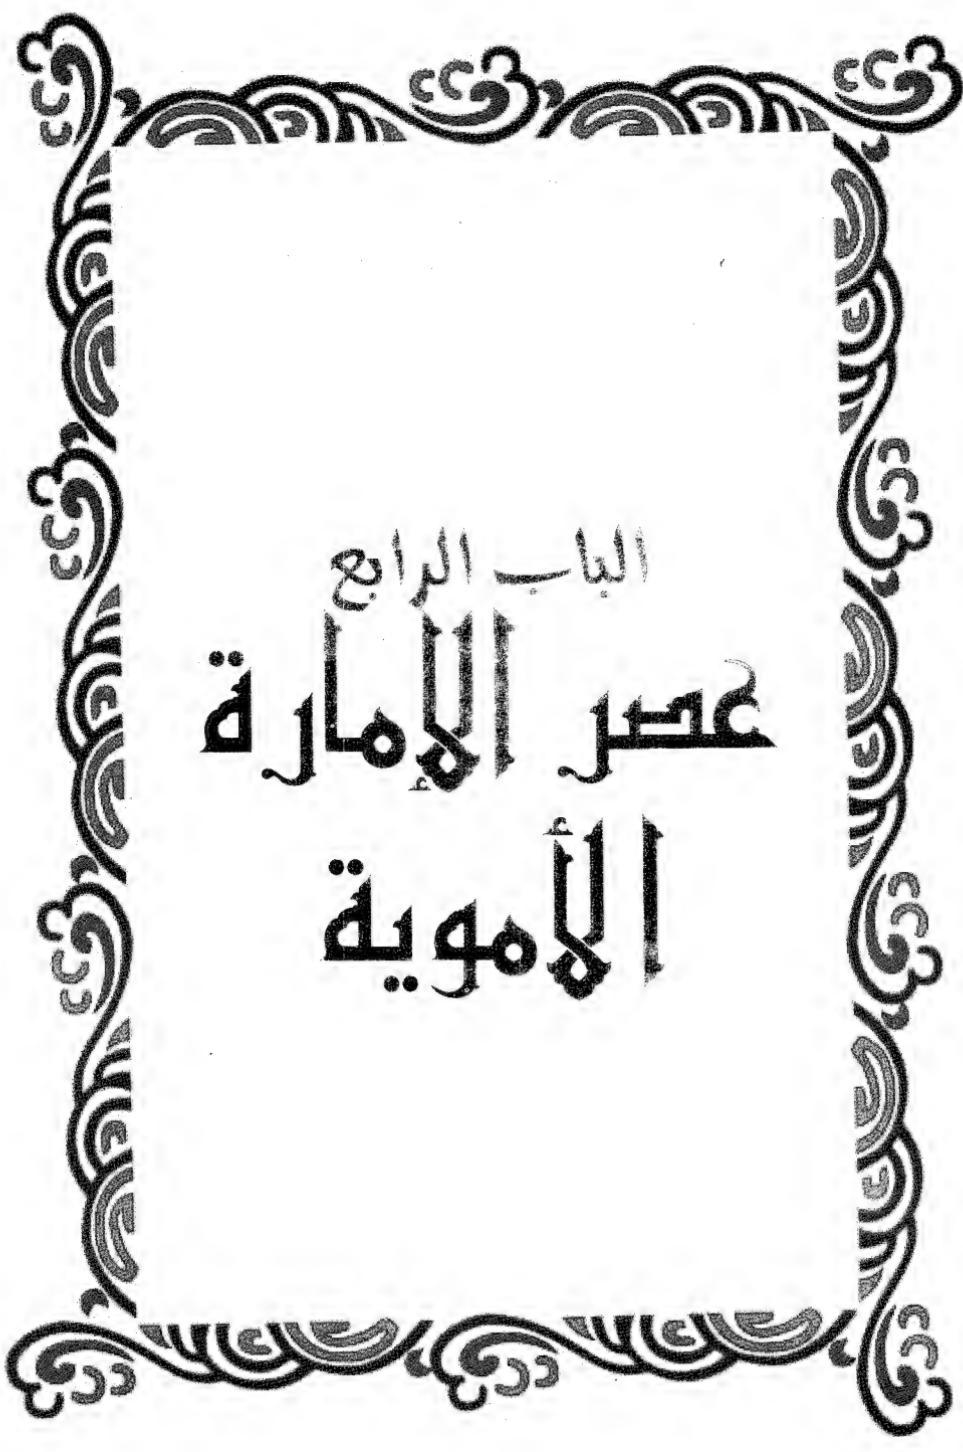 الباب الرابع
عصر الإمارة
الأموية